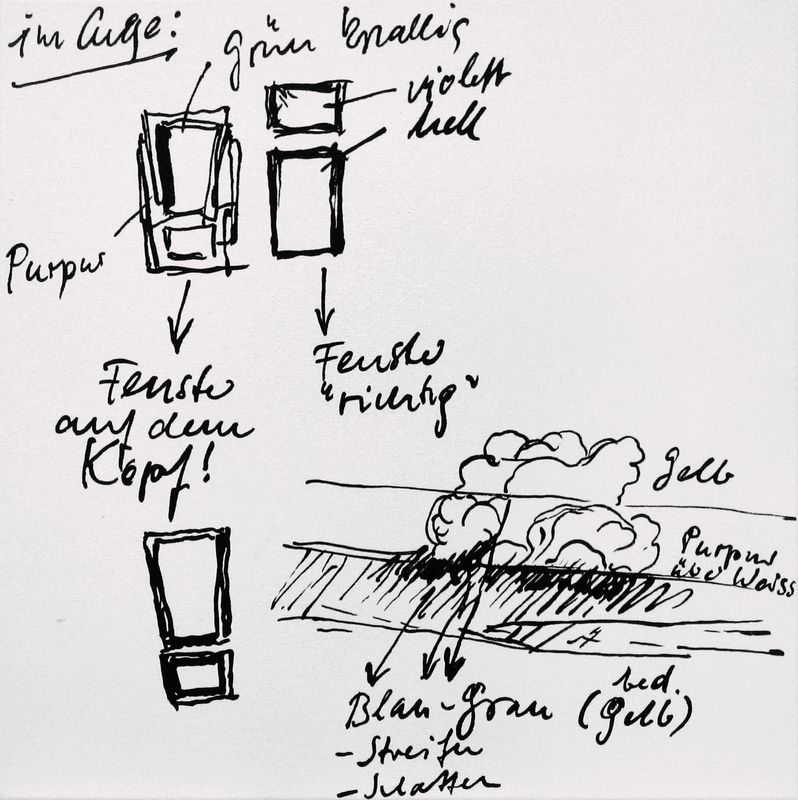 im Auge:
grün knallig
violett
hell
Purpur
Fenster
auf dem
Kopf!
Fenster
"richtig"
Gelb
Purpur
über Weiss
Blau-Grau (bed.
Gelb)
- Streifen
- Schatten